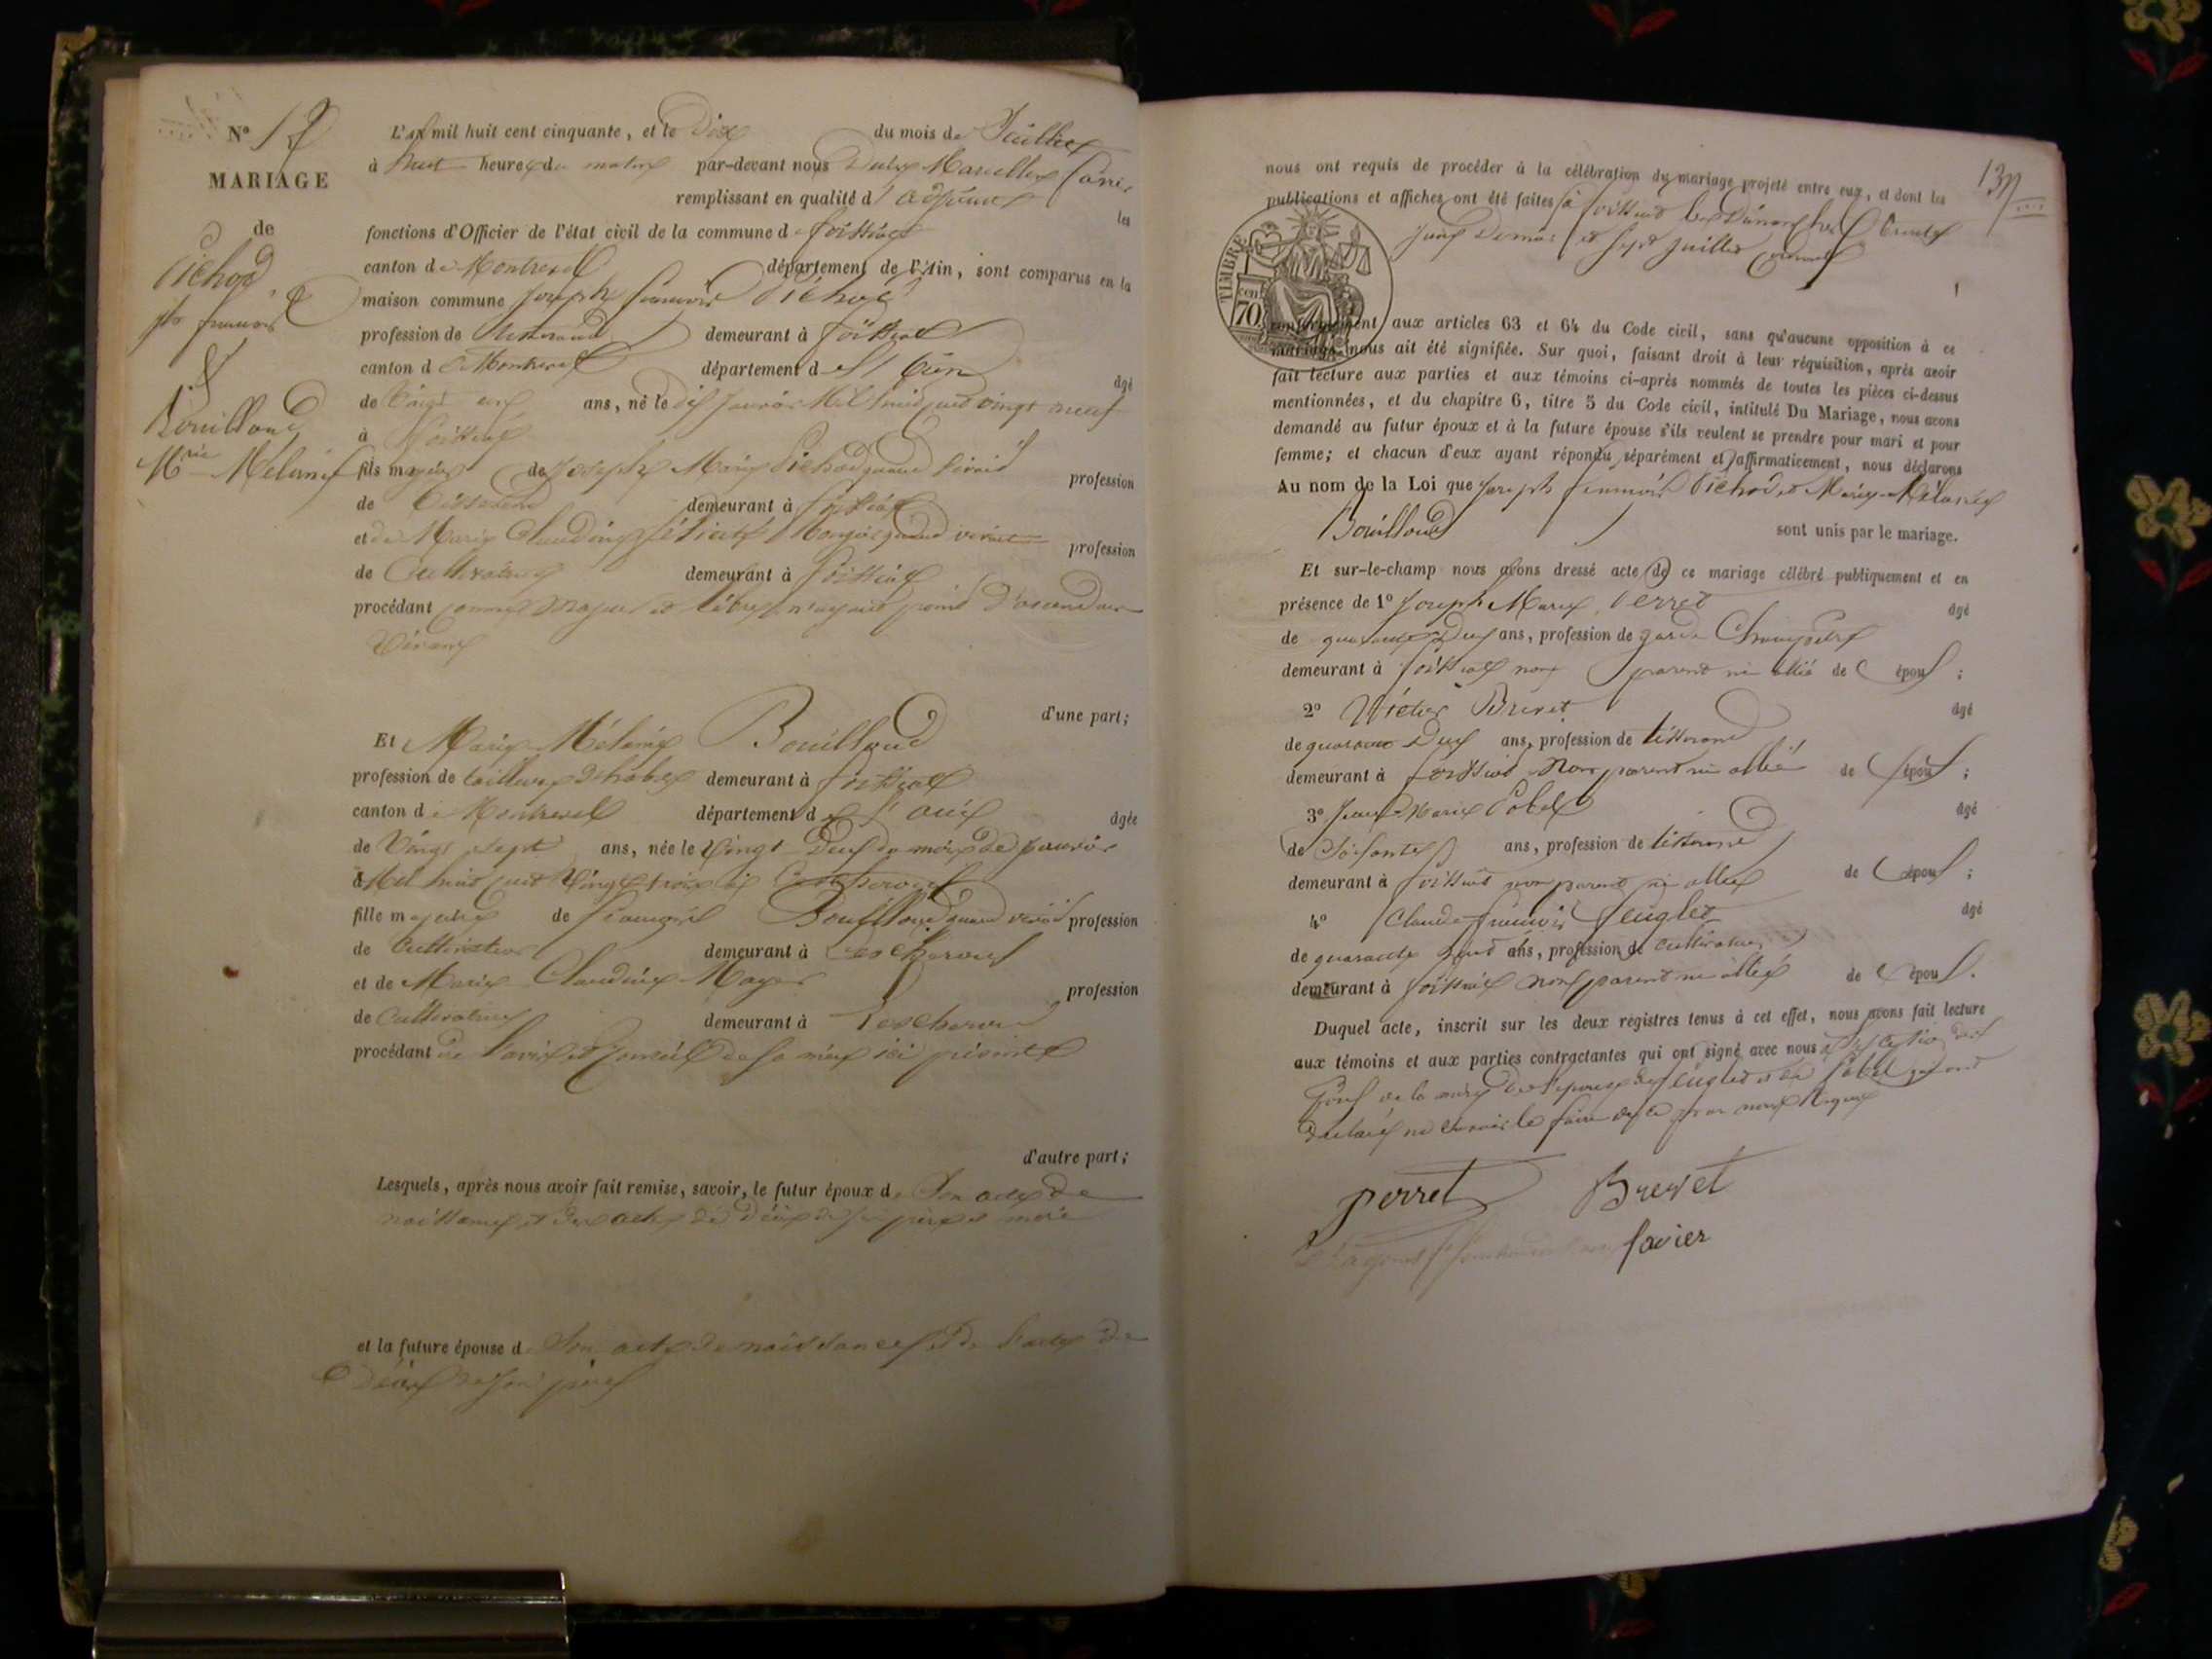 N° 12
MARIAGE
de
Pichod
jh françois
&
Bouilloud
Mrie Mélanie
L'an mil huit cent cinquante, et le Dix du mois de Juillet
à huit heures du matin par-devant nous
remplissant en qualité d'adjoint les
fonctions d'Officier de l'état civil de la commune de foissiat
canton de Montrevel département de l'Ain, sont comparus en la
maison commune Joseph françois Pichod
profession de tisserand demeurant à foissiat
canton de Montrevel département de l'ain âgé
de Vingt un ans, né le dix janvier Mil huit cent vingt neuf
à foissiat
fils majeur de Joseph Marie Pichod quand vivait profession
de tisserand demeurant à foissiat
et de Marie Claudine félicité quand vivait profession
de Cultivatrice demeurant à foissiat
procédant comme majeur et libre n'ayant point d'ascendans
vivans
d'une part;
Et Marie Mélanie Bouilloud
profession de tailleuse d'habits demeurant à foissiat
canton de Montrevel département de l'ain âgée
de Vingt sept ans, née le vingt Deux du mois de janvier
Mil huit cent vingt trois à Lescheroux
fille majeure de françois Bouilloud quand vivait profession
de Cultivateur demeurant à Lescheroux
et de Marie Claudine Moyer profession
de Cultivatrice demeurant à Lescheroux
procédant de l'avis et conseil de sa mère ici présente
d'autre part;
Lesquels, après nous avoir fait remise, savoir, le futur époux de Son acte de
naissance et des actes de décès de ses père et mère
et la future épouse de Son acte de naissance et de l'acte de
Décès de son père
137
nous ont requis de procéder à la célébration du mariage projeté entre eux, et dont les
publications et affiches ont été faites à foissiat les Dimanches trente
juin Dernier et sept juillet courant
TIMBRE
cent
70
conformément aux articles 63 et 64 du Code civil, sans qu'aucune opposition à ce
mariage nous ait été signifiée. Sur quoi, faisant droit à leur réquisition, après avoir
fait lecture aux parties et aux témoins ci-après nommés de toutes les pièces ci-dessus
mentionnées, et du chapitre 6, titre 5 du Code civil, intitulé Du Mariage, nous avons
demandé au futur époux et à la future épouse s'ils veulent se prendre pour mari et pour
femme; et chacun d'eux ayant répondu séparément et affirmativement, nous déclarons
Au nom de la Loi que joseph françois Pichod et Marie Mélanie
Bouilloud sont unis par le mariage.
Et sur-le-champ nous avons dressé acte de ce mariage célébré publiquement et en
présence de 1° Joseph Marie Perret âgé
de quarante Deux ans, profession de garde Champêtre
demeurant à foissiat non parent ni allié de époux;
2° Victor Brevet âgé
de quarante Deux ans, profession de tisserand
demeurant à foissiat Non parent ni allié de époux;
3° Jean Marie Pobel âgé
de Soixante ans, profession de tisserand
demeurant à foissiat non parent ni allié de époux;
4° Claude françois feuglet âgé
de quarante huit ans, profession de cultivateur
demeurant à foissiat non parent ni allié de époux.
Duquel acte, inscrit sur les deux registres tenus à cet effet, nous avons fait lecture
aux témoins et aux parties contractantes qui ont signé avec nous à l'exception des
époux de la mère de l'épouse de feuglet et de Pobel qui ont
déclaré ne savoir le faire de ce par nous requis
perret Brevet
favier